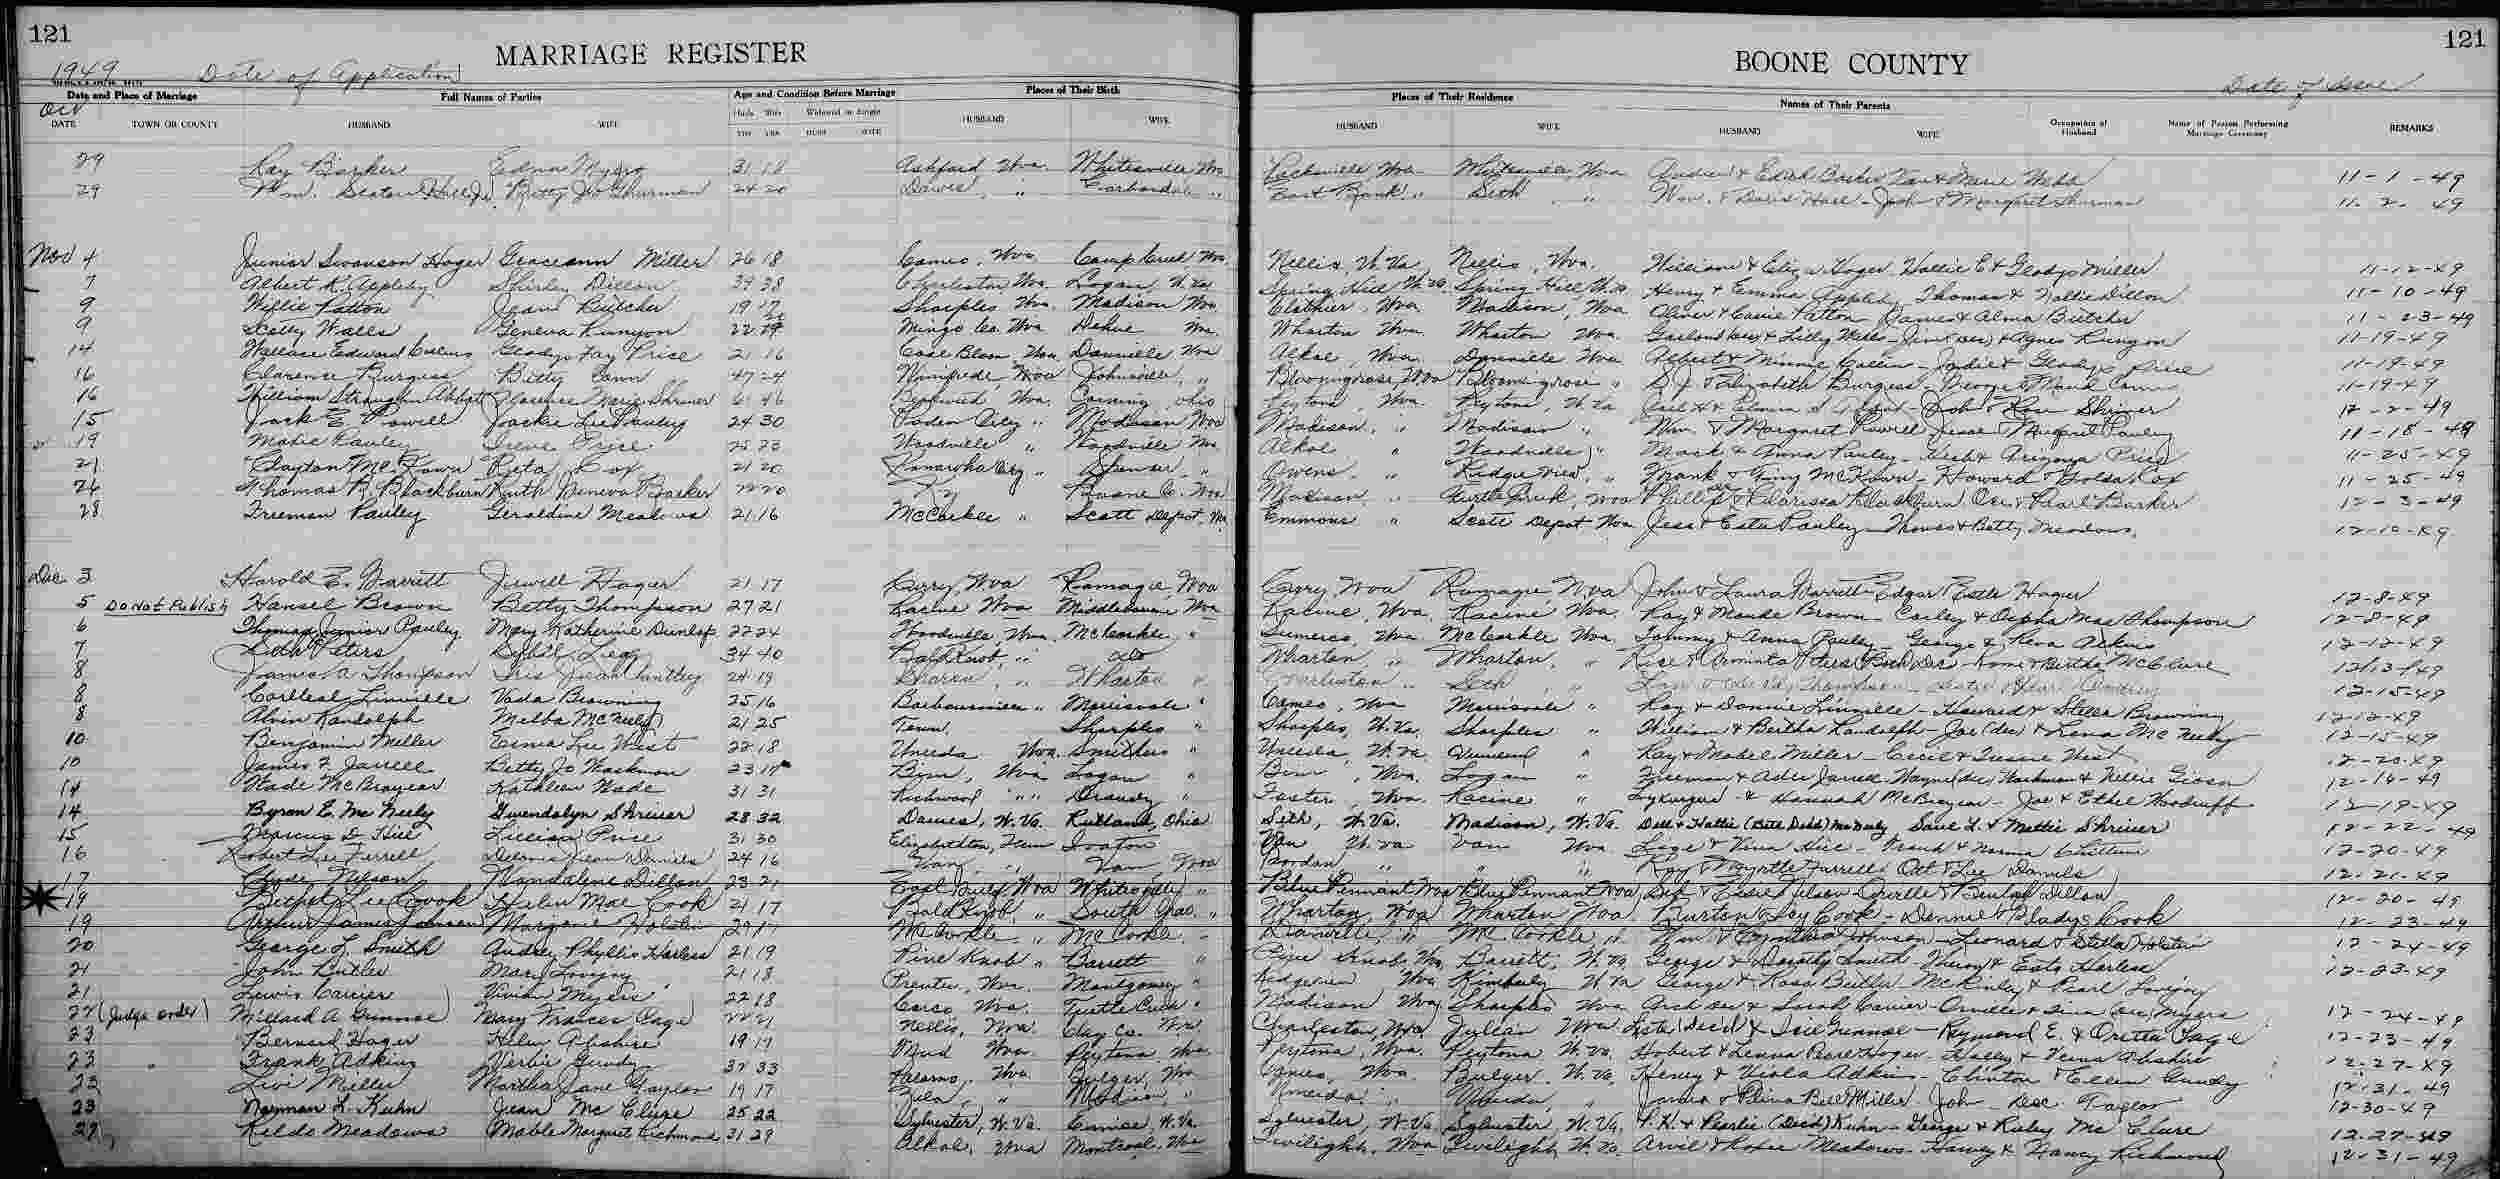 121
MARRIAGE REGISTER
BOONE COUNTY
121
1949 Date of Application
Date of Issue
Date and Place of Marriage Full Names of Parties Age and Condition Before Marriage Places of Their Birth Places of Their Residence Names of Their Parents
Oct
DATE TOWN OR COUNTY HUSBAND WIFE Widowed or Single HUSBAND WIFE HUSBAND WIFE HUSBAND WIFE Occupation of Husband Name of Person Performing Marriage Ceremony REMARKS
29 Ray Barker Edna 31 18 Ashford Wva. Whitesville Wva Whitesville, Wva 11-1-49
29 Wm. Seaton Hall Jr. Betty Jo Shurman 24 20 Dawes " " East Bank " Seth " Wm. & Doris Hall - John & Margaret Shurman 11-2-49
Nov 4 Junior Swanson Hager Graceann Miller 26 18 Cameo, Wva. Camp Creek Wva. Nellis, W. Va. Nellis, Wva. William & Eliza Hager Hallie E & Gladys Miller 11-12-49
7 Albert K. Appleby Shirley Dillon 39 38 Charleston, Wva. Logan, W. Va. Spring Hill W. Va. Spring Hill W. Va. Henry & Emma Appleby Thomas & Nollie Dillon 11-10-49
9 Willie Patton Jean Butcher 19 17 Sharples Wva. Madison Wva. Clothier, Wva Madison, Wva Oliver & Cassie Patton James & Alma Butcher 11-23-49
9 Scotty Walls Geneva Runyon 22 Mingo Co. Wva Dehue Wva. Wharton Wva. Wharton Wva. & Lilly Walls - Jim (Dec) & Agnes Runyon 11-19-49
14 Wallace Edward Collins Gladys Fay Price 21 16 Danville Wva Alkol, Wva. Danville Wva Albert & Minnie Collins - & Gladys Price 11-19-49
16 Clarence Burgess Betty Cann 47 24 Winifrede, Wva Johnsville, " Bloomingrose, Wva Bloomingrose " S. J. & Elizabeth Burgess - George & Maud Cann 11-19-49
16 William Straughn Abbott Clarence Marie Shriner 61 46 Wva. Corning, Ohio Peytona, Wva. Peytona, W. Va - John & Rose Shriner 12-2-49
15 Jack E. Powell Jackie Lee Pauley 24 30 Paden City " Madison Wva Madison, " Madison " Wm. & Margaret Powell Jesse & Margaret Pauley 11-18-49
19 Matie Pauley Irene Price 23 Woodville " Woodville Wva. Alkol " Woodville " Mack & Anna Pauley - & Arizona Price 11-25-49
21 Clayton McKown Reta Cox 21 20 Kanawha City " Spencer " Owens " Ridgeview, " Frank & McKown - Howard & Golda Cox 11-25-49
26 Thomas P. Blackburn Ruth Geneva Barker 20 Ky Boone Co. Wva Madison " Turtle Creek, Wva Phillip & Clarissa Blackburn & Pearl Barker 12-3-49
28 Freeman Pauley Geraldine Meadows 21 16 McCorkle " Scott Depot, Wva Emmons " Scott Depot Wva. Jess & Esta Pauley - Thomas & Betty Meadows. 12-10-49
Dec 3 Harold E. Barrett Jewell Hager 21 17 Curry, Wva Ramage, Wva Curry, Wva Ramage Wva John & Laura Barrett - Edgar & Estle Hager 12-8-49
5 Do Not Publish Hansel Brown Betty Thompson 27 21 Racine Wva Middlebourne Wva Racine, Wva. Racine Wva. Ray & Maude Brown - Corley & Orpha Mae Thompson 12-8-49
6 Thomas Junior Pauley Mary Katherine Dunlap 22 24 Woodville, Wva. McCorkle, " Sumerco, Wva McCorkle Wva. Tommy & Anna Pauley - George & Reva Adkins 12-12-49
7 Seth Peters Sybil Legg 34 40 Bald Knob, " Wharton, " Wharton, " Rice & Arminta Peters (Both Dec) - & Bertha McClure 12-13-49
8 James A Thompson Iris Jean 24 19 Sharon, " Wharton " Charleston " Seth " 12-15-49
8 Carlleal Linville Vada Browning 25 16 Barboursville " Morrisvale " Cameo, Wva Morrisvale " Ray & Donnie Linville - Howard & Stella Browning 12-12-49
8 Alvin Randolph Melba McNeely 21 25 Tenn. Sharples " Sharples, W. Va. Sharples " William & Bertha Randolph - Joe (dec) & Lena McNeely 12-15-49
10 Benjamin Miller Erma Lee West 22 18 Uneeda Wva. Smithers " Uneeda, W. Va. " Ray & Mabel Miller - Cecil & West 12-20-49
10 James F Jarrell Betty Jo Workman 23 17 Bim, Wva Logan " Bim, Wva. Logan " Freeman & Ada Jarrell - Wayne (dec) Workman & Nellie Gibson 12-16-49
14 Wade McBrayear Kathleen Wade 31 31 Richwood " Orgas " Foster, Wva. Racine " & Hannah McBrayear - Joe & Ethel Woodruff 12-19-49
14 Byron E. McNeely Gwendolyn Shriver 28 32 Dawes, W. Va. Rutland, Ohio Seth, W. Va. Madison, W. Va. Dell & Hattie (Both Dead) McNeely Saul L. & Mettie Shriver 12-22-49
15 Marcus D Hill Lillian Price 31 30 Elizabethton, Tenn Ironton Van W. Va Van Wva. & Vina Hill - Frank & Norma 12-20-49
16 Robert Lee Ferrell Jean Daniels 24 16 Van " Van, Wva Gordon " " " Ray & Myrtle Ferrell Ott & Lee Daniels 12-21-49
17 Clyde Nelson Mandalene Dillon 23 21 Wva Whitesville " Blue Pennant Wva Blue Pennant Wva & Essie Nelson - & Beulah Dillon 12-20-49
19 Bethel Lee Cook Helen Mae Cook 21 17 Bald Knob " South Char. " Wharton, Wva Wharton Wva Burton & Joy Cook - Dennie & Gladys Cook 12-23-49
19 Arthur James Johnson Margarie Holstein 29 17 McCorkle " McCorkle. " Danville, " McCorkle " Wm & Cynthia Johnson - Leonard & Stella Holstein 12-24-49
20 George L. Smith Audrey Phyllis Harless 21 19 Pine Knob " Barrett " Pine Knob, Wva Barrett, W. Va George & Dorothy Smith - & Esta Harless 12-23-49
21 John Butler Mary Lovejoy 21 18 Prenter, Wva. Montgomery " Ridgeview Wva Kimberly W. Va George & Rosa Butler - McKinley & Pearl Lovejoy
21 Lewis Carrier Vivian Myers 22 18 Turtle Creek " Madison Wva Sharples Wva & Sarah Carrier - Orville & Tina (Dec) Myers 12-24-49
22 (Judge order) Millard A Gunnoe Mary Frances Page 22 21 Nellis, Wva. Clay Co. Wv. Charleston, Wva Julian Wva (Dec'd) & Icie Gunnoe - Raymond E. & Oretta Page 12-23-49
23 Bernard Hager Helen Abshire 19 17 Mud Wva. Peytona, Wva. Peytona, Wva. Peytona W. Va. Hobert & Lenna Pearl Hager - Holley & Verna Abshire 12-27-49
23 Frank Adkins Verbie Gundy 32 33 Palermo, Wva. Bulger, Wva Cameo, Wva. Bulger, W. Va. Henry & Viola Adkins - Clinton & Ellen Gundy 12-31-49
23 Levi Miller Martha Jane Taylor 19 17 Zela, " Madison " Uneeda, " Uneeda, " James & Plina Bell Miller - John - Dec. Taylor 12-30-49
23 Norman L. Kuhn Jean McClure 25 22 Sylvester, W. Va. Eunice, W. Va. Sylvester, W. Va Sylvester, W. Va. P. H. & Pearlie (Decd) Kuhn - George & Ruby McClure 12-27-49
27 Keldo Meadows Mable Margaret Richmond 31 29 Alkol, Wva Montcoal, Wva Twilight, Wva Twilight, W. Va. Arvil & Rosie Meadows - Harvey & Nancy Richmond 12-31-49